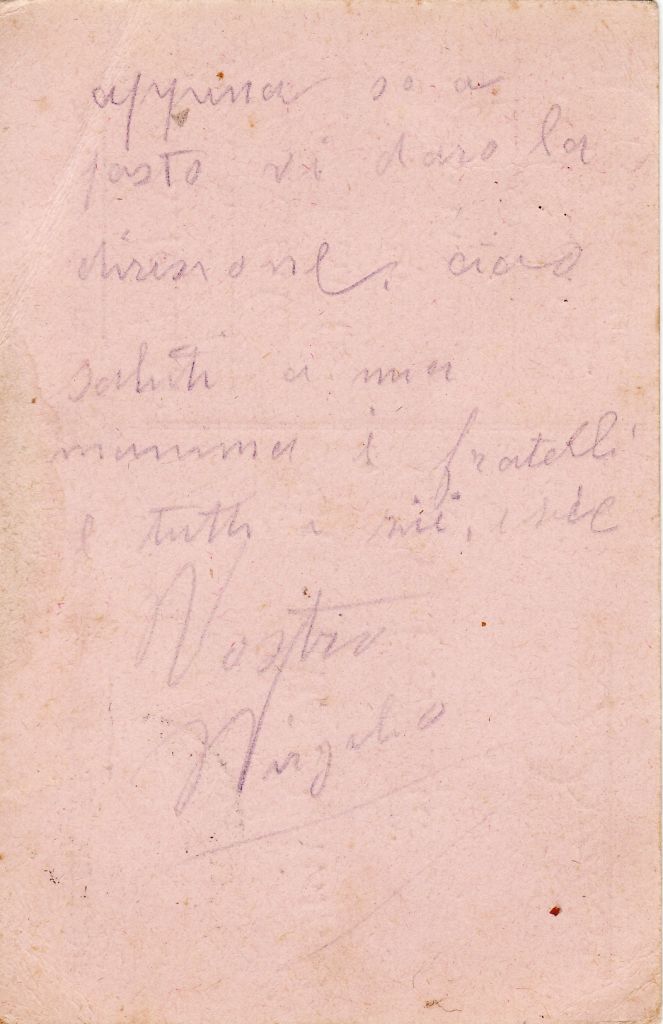 appena so a
posto vi daro la
direzione, ciao
saluti a mia
mamma i fratelli
e tutti i zii, e zie
Vostro
Virgilio